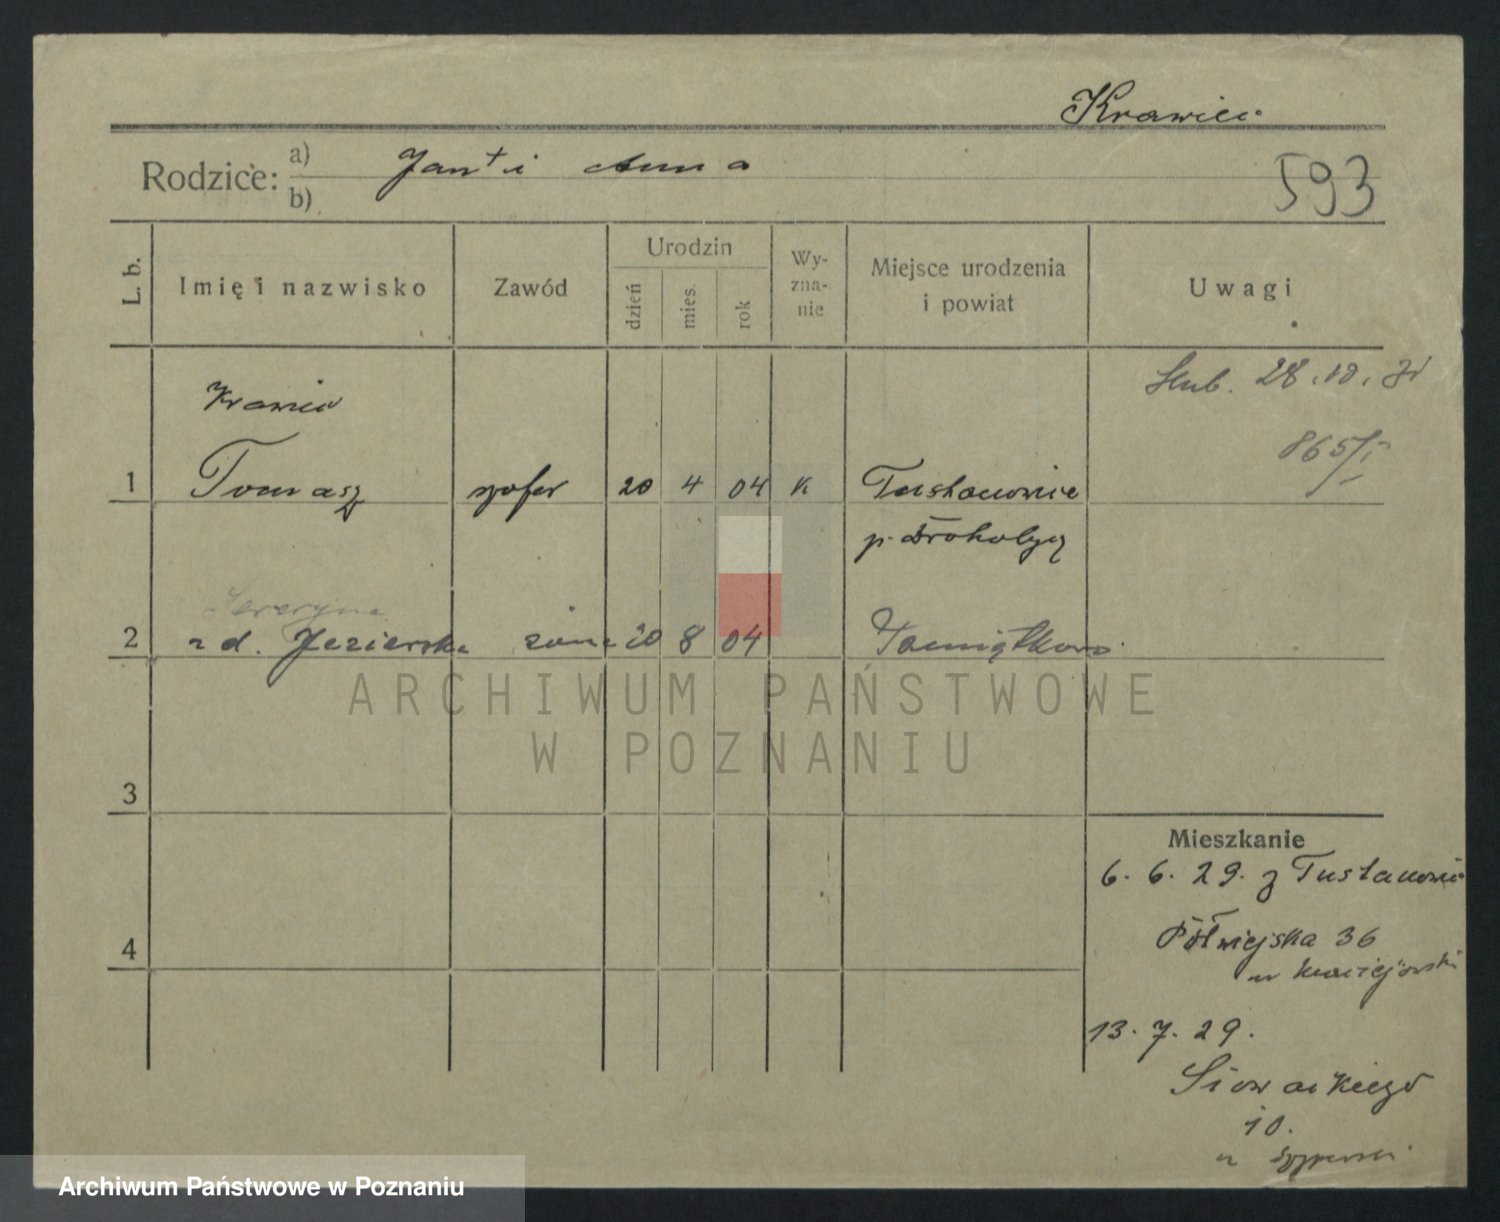 Krawiec
Rodzice: a) Jan + i Anna
b)
593
L. b.
Imię i nazwisko
Zawód
Urodzin
dzień
mies.
rok
Wy-
zna-
nie
Miejsce urodzenia
i powiat
Uwagi
Ślub. 28.10.31
865/I
Krawiec
1 Tomasz szofer 20 4 04 k Tustanowice
p. Drohobycz
Seweryna
2 z d. Jezierska żona 20 8 04 Pamiątkowo
3
4
Mieszkanie
6. 6. 29. z Tustanowic
Półwiejska 36
u Maciejewski
13. 7. 29.
Słowackiego
10.
u
ARCHIWUM PAŃSTWOWE
W POZNANIU
Archiwum Państwowe w Poznaniu